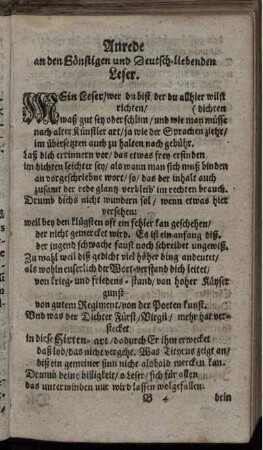 Anrede
an den Gönstigen und Deutsch-liebenden
Leser.
MEin Leser/wer du bist der du allhier wilst
richten/ dichten
waß gut sey oder schlim/und wie man müsse
nach alter Künstler art/ja wie der Sprachen ziehr/
im übersetzen auch zu halten nach gebühr.
Laß dich errinnern vor/das etwas frey ersinden
im dichten leichter sey/als wann man sich muß binden
an vorgeschriebne wort/so/das der inhalt auch
zusamt der rede glantz verbleib' im rechten brauch.
Drumb dichs nicht wundern sol/wenn etwas hier
versehen:
weil bey den klügsten oft ein fehler kan geschehen/
der nicht gemercket wird. Es ist ein anfang diß,
der jugend schwache faust noch schreiber ungewiß.
Zu wahl weil diß gedicht viel höher ding andeutet/
als wohin eußerlich der Wort-verstand dich leitet/
von krieg-und friedens-stand/von hoher Käyser
gunst
von gutem Regiment/von der Poeten kunst.
Und was der Dichter Fürst/Virgil/mehr hat ver-
stecket
in diese Hirten-art/dadurch Er ihm erwecket
daß lob/das nicht vergehe. Was Tityrus zeigt an/
diß ein gemeiner sinn nicht alsbald mercken kan.
Drumb deine billigkeit/o Leser/sich für allen
das unterwinden nur wird lassen wolgefallen.
B 4 dein